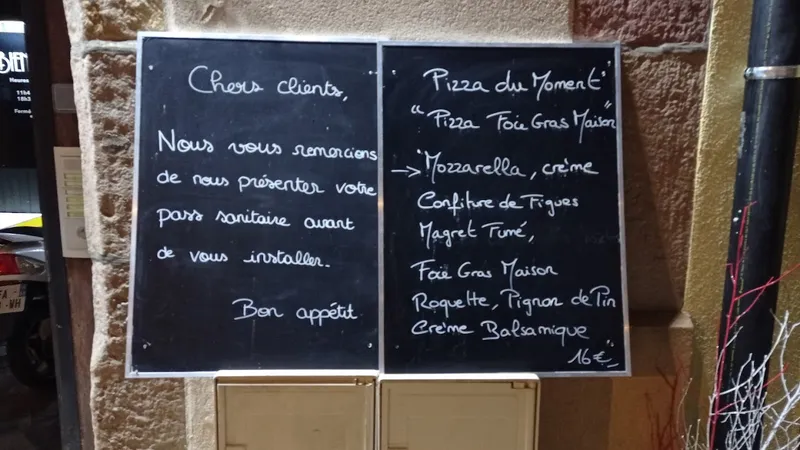 Chers clients,
Nous vous remercions
de nous présenter votre
pass sanitaire avant
de vous installer.
Bon appétit
Pizza du Moment
"Pizza Foie Gras Maison"
→ Mozzarella, crème
Confiture de Figues
Magret Fumé,
Foie Gras Maison
Roquette, Pignon de Pin
Crème Balsamique
16€
Heures
11h4
18h3
Fermé